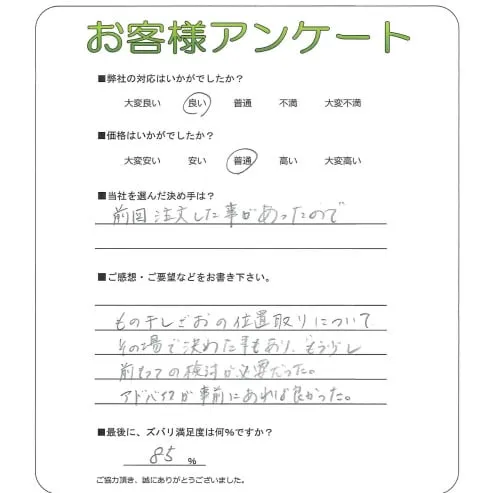 お客様アンケート
■弊社の対応はいかがでしたか？
大変良い 良い 普通 不満 大変不満
■価格はいかがでしたか？
大変安い 安い 普通 高い 大変高い
■当社を選んだ決め手は？
前回注文した事があったので
■ご感想・ご要望などをお書き下さい。
もの干しざおの位置取りについて
その場で決めた事もあり、もう少し
前もっての検討が必要だった。
アドバイスが事前にあれば良かった。
■最後に、ズバリ満足度は何％ですか？
85 %
ご協力頂き、誠にありがとうございました。